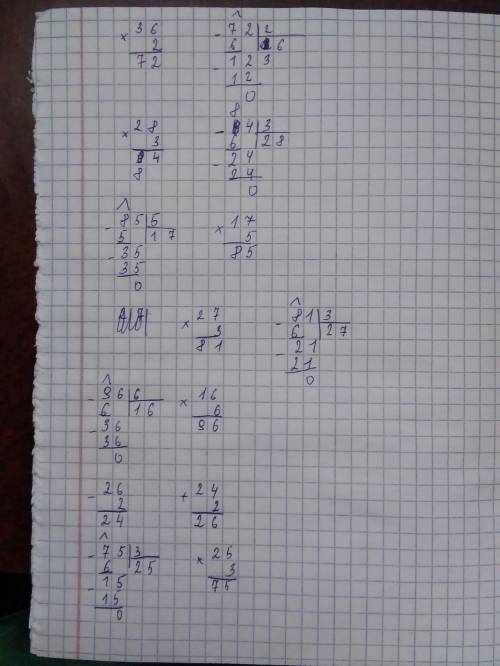 × 36   - 72 | 2
2   6   36
72   - 12 3
12
0
× 28   8
3   - 4 | 3
4   6   28
8   - 24
24
0
- 85 | 5   × 17
5   17   5
- 35   85
35
0
× 27   - 81 | 3
3   6   27
81   - 21
21
0
- 96 | 6   × 16
6   16   6
- 36   96
36
0
- 26   + 24
2   2
24   26
- 75 | 3   × 25
6   25   3
- 15   75
15
0